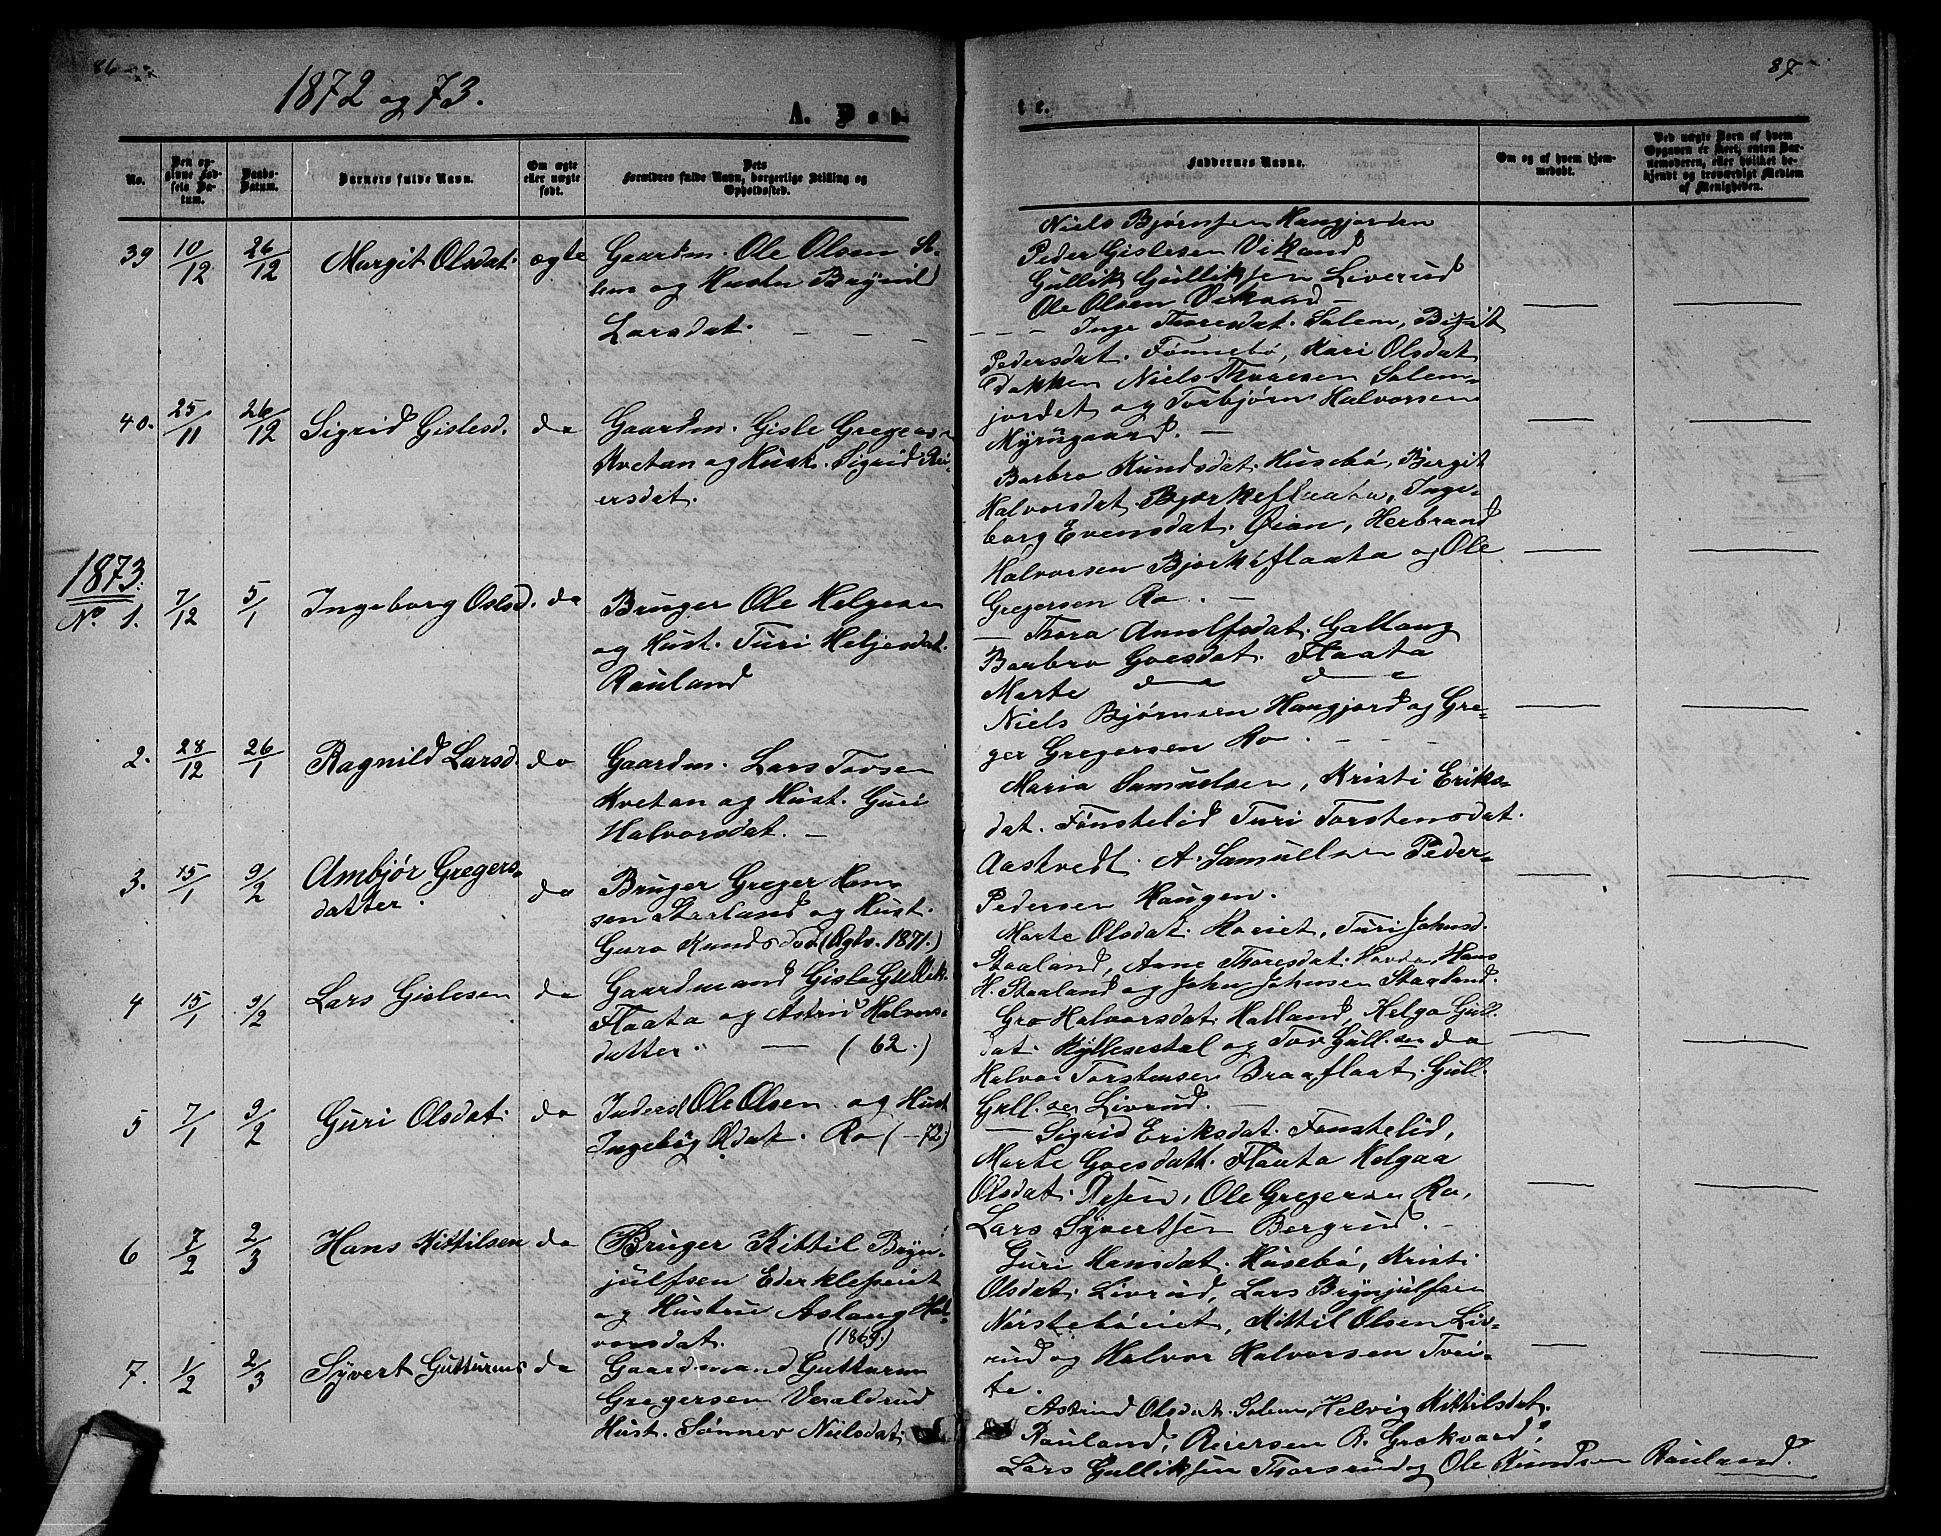 86
1872 og 73.
A. Døb-
No.
Den opgivne Fødsels Datum.
Daabs-Datum.
Barnets fulde Navn.
Om ægte eller uægte født.
Dets
Forældres fulde Navn, borgerlige Stilling og Opholdssted.
39 10/12 26/12 Margit Olsdat. ægte Gaardm. Ole Olsen
og Hustr
Larsdat.
40. 25/11 26/12 Sigrid Gislesd. do Gaardm. Gisle Gregers
Kvetan og Hust. Sigrid Rei-
ersdat.
1873.
No. 1. 7/12 5/1 Ingeborg Olsd. do Bruger Ole Helgesen
og Hust. Turi Heljesdat.
Rauland
2. 28/12 26/1 Ragnild Larsd. do Gaardm. Lars Tovsen
Kvetan og Hust. Guri
Halvorsdat.
3. 15/1 9/2 Ambjør Gregers-
datter. do Bruger Greger Han-
sen Staaland og Hust.
Guro Knudsdat (Cgtv. 1871.)
4 15/1 9/2 Lars Gislesen do Gaardmand Gisle Gullik.
Flaata og Astrid Halvors-
datter. (62.)
5 7/1 9/2 Guri Olsdat. do Inderst Ole Olsen og Hust
Ingebög Oldat. Ro (-72)
6 7/2 2/3 Hans Kittilsen do Bruger Kittil Bryn-
julfsen Ederkleseiet
og Hustru Aslaug Hal-
vorsdat. (1869.)
7. 1/2 2/3 Syvert Gutturms do Gaardmand Gutturm
Gregersen Veraldrud
Hust. Sønnev Nielsdat.
87
te.
Faddernes Navne.
Om og af hvem hjemmedøbt.
Ved uægte Barn af hvem Opgaven er skeet, enten Barnemoderen, eller hvilket bekjendt og troværdigt Medlem af Menigheden.
Niels Bjørnsen Haugjorden
Peder Gislesen Vikand
Gullik Gulliksen Liverud
Ole Olsen
Inge Thoresdat. Solem, Birgit
Pedersdat. Fønnebø, Kari Olsdat
Dokken Niels Thoresen Solem-
jordet og Torbjørn Halvorsen
Myrugaard.
Barbro Knudsdat. Husebø, Bergit
Halvorsdat. Bjørkeflaata, Inge-
borg Evensdat. Øian, Herbrand
Halvorsen Bjørkeflaata og Ole
Gregersen Ro.
Thora Gallaug
Barbro Goesdat. Flaata
Marte do do
Niels Bjørnsen Haugjord og Gre-
ger Gregersen Ro.
Maria Samuelsen, Kristi Eriks-
dat. Fønstelid Turi Torstensdat.
Aastvedt. A. Samuelsen Peder-
Pedersen Haugen.
Marte Olsdat. Turi Johnsd.
Staaland, Anne Thoresdat. Hans
H. Staaland og John Johnsen Staaland.
Gro Halvorsdat. Halland, Helga Gull.
dat. Kyllesestøl og Tov Gull.sen do
Halvor Torstensen Braaflaat. Gull.
Gull.sen Livrud.
Sigrid Eriksdat. Fønstelid,
Marte Goesdatt. Flaata Helgaa
Olsdat. Ole Gregersen Ro,
Lars Syvertsen Bergrud.
Guri Hansdat. Husebø, Kristi
Olsdat. Livrud, Lars Brynjulfsen
Nørstebøeiet, Kittil Olsen Liv-
rud og Halvor Halvorsen Tvei-
te.
Astrid Olsdat. Solem, Helvig Kittilsdat.
Rauland, Reiersen R. Grøkvard,
Lars Gulliksen Thorsrud og Ole Knudsen Rauland.